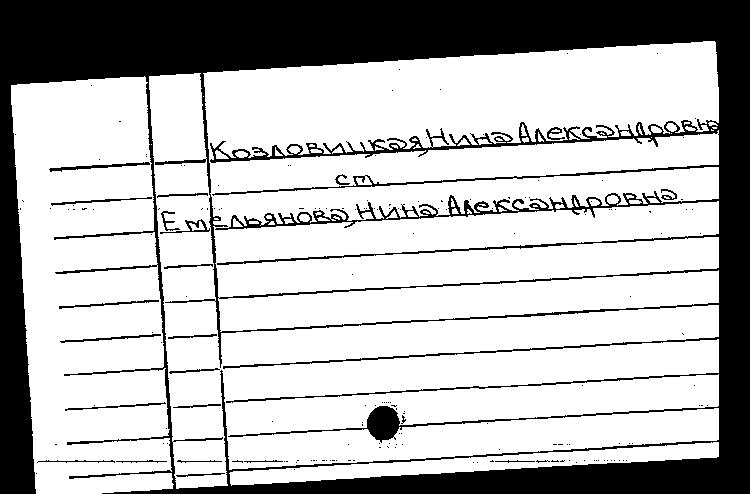 Козловицкая, Нина Александровна
ст.
Емельянова, Нина Александровна